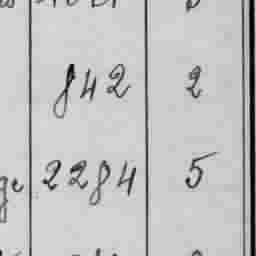 842 2
ge 2284 5